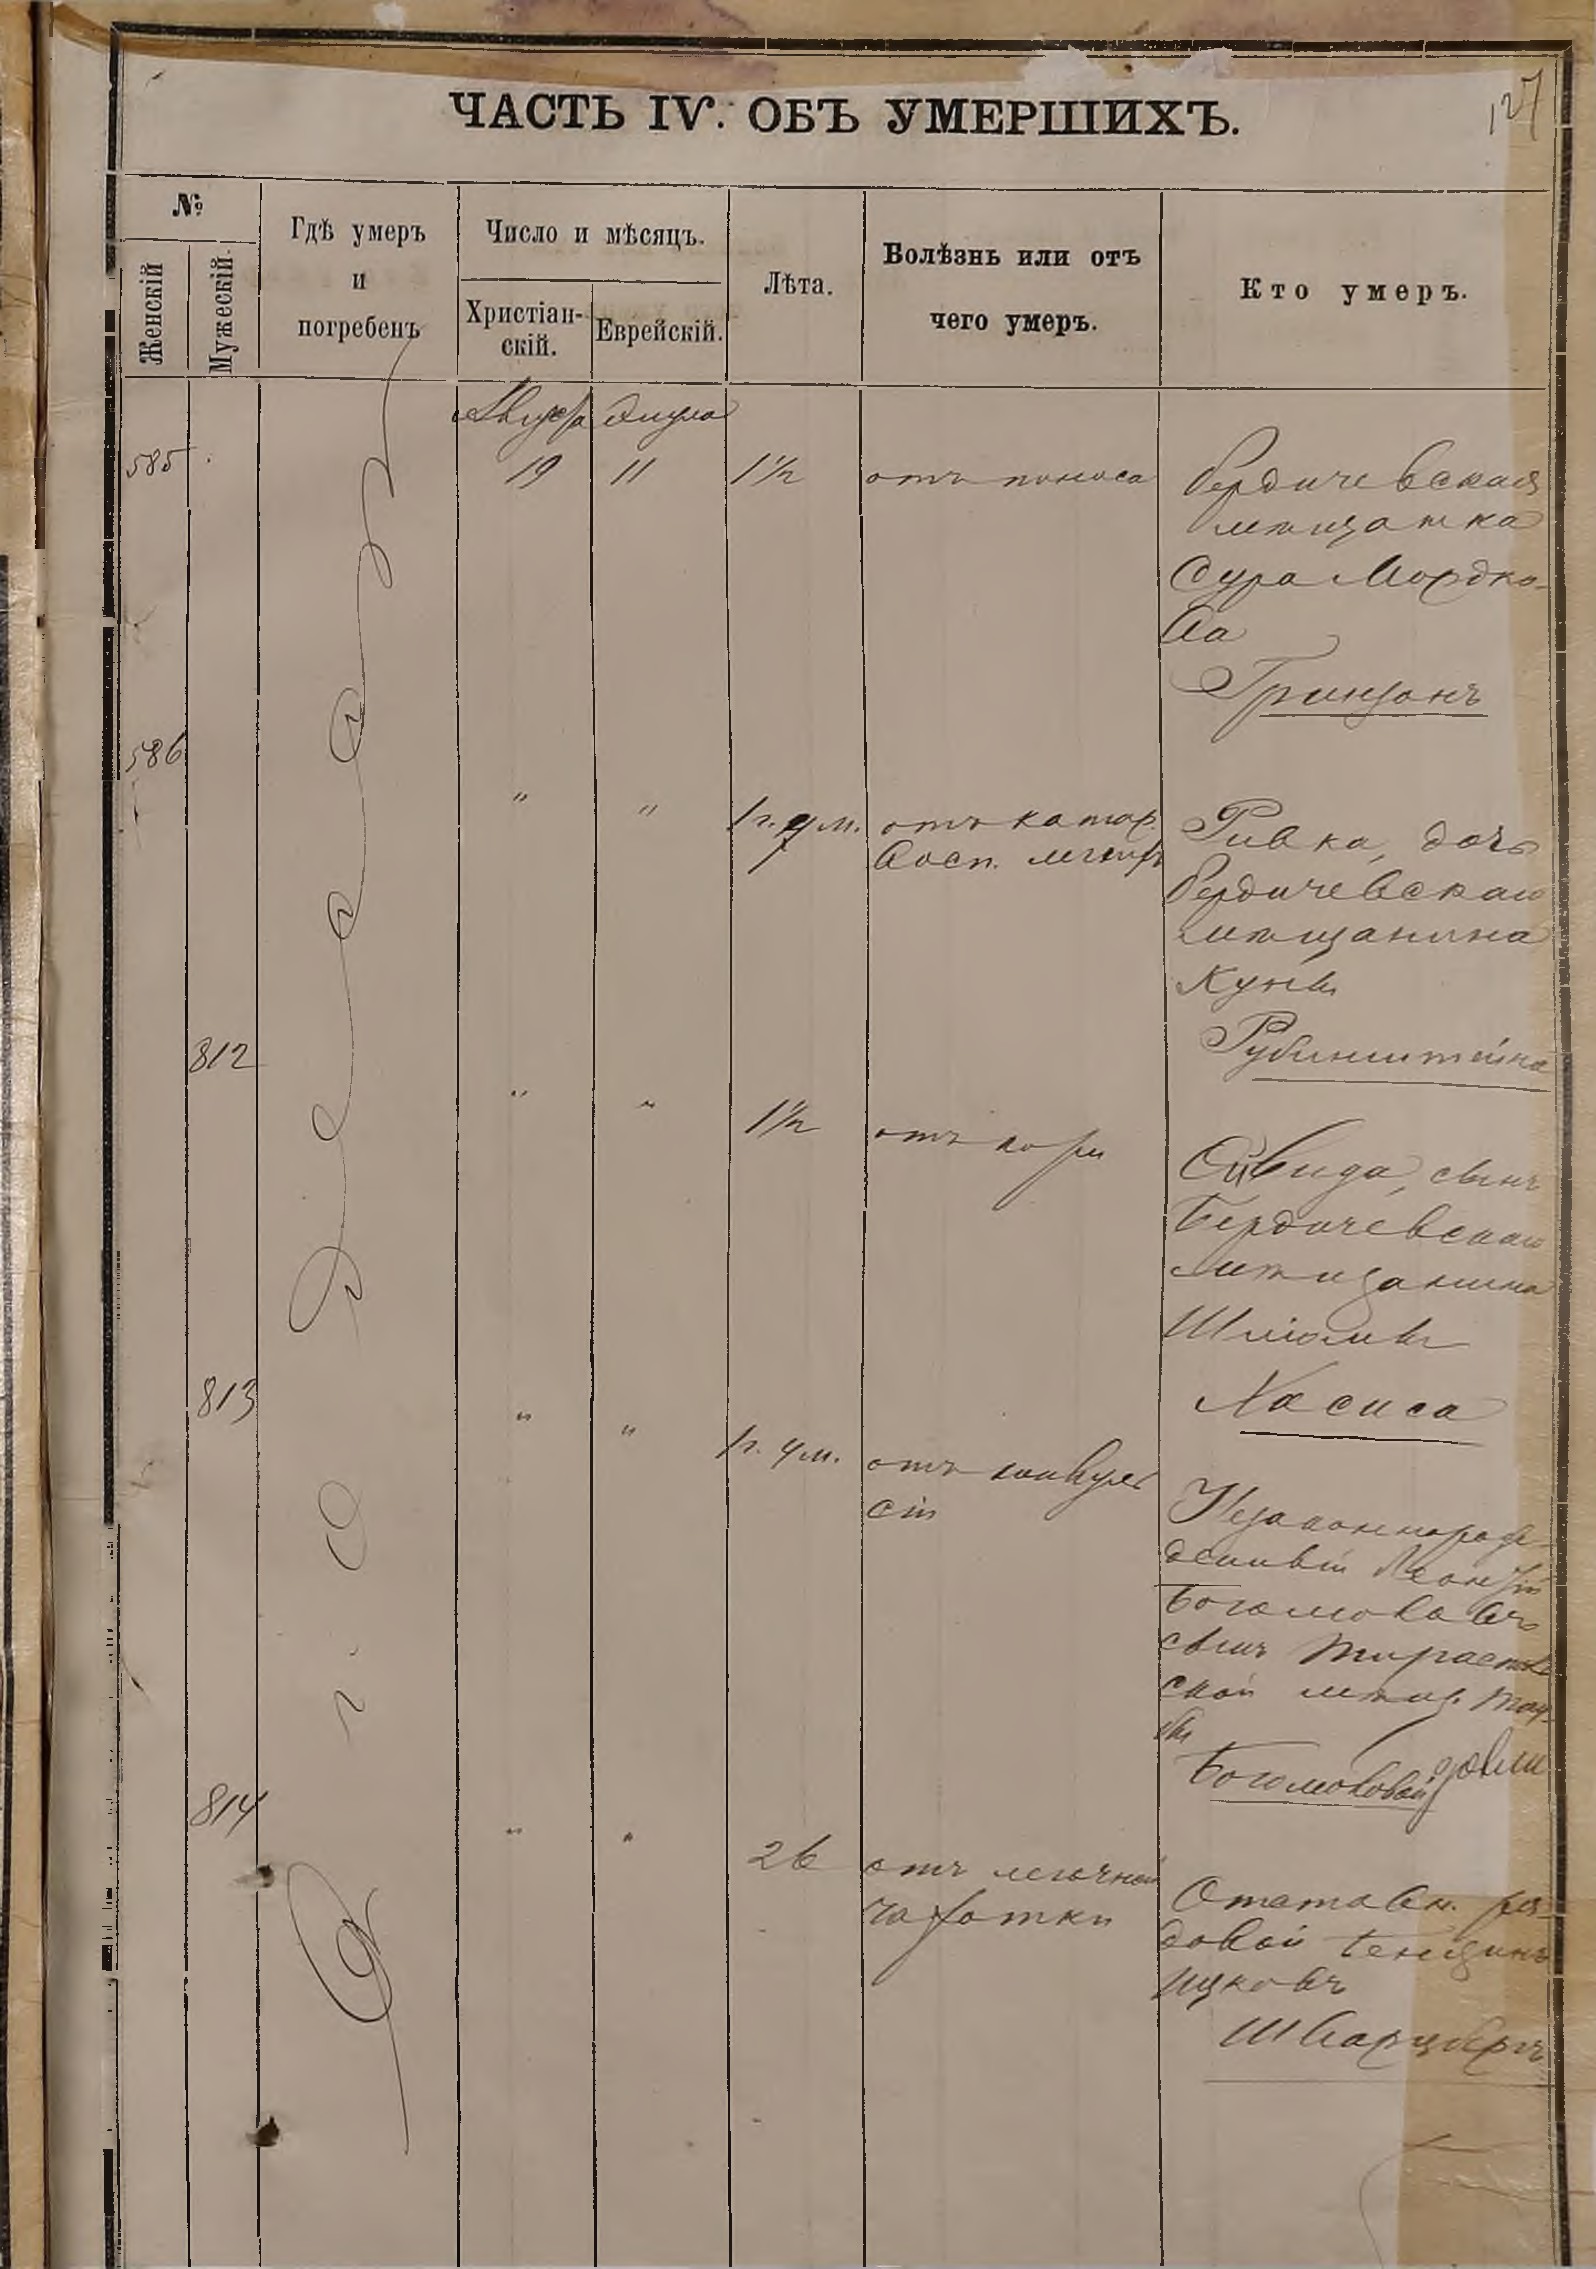 127
ЧАСТЬ IV. ОБЪ УМЕРШИХЪ.
№
Женскій
Мужескій.
Гдѣ умеръ
и
погребенъ
Число и мѣсяцъ.
Христіан-
скій.
Еврейскій.
Лѣта.
Болѣзнь или отъ
чего умеръ.
Кто умеръ.
г. Одесса
Августа Элула
585 19 11 1½ отъ поноса Бердичевская
мѣщанка
Сура Мордко-
ва
Гринцонъ
586
" " 1 г. 9 м. отъ катар. Ривка, дочь
восп. легких
Бердичевскаго
мѣщанина
Куны
Рубинштейна
812
" " 1½ отъ кори
сынъ
Бердичевскаго
мѣщанина
Шліомы
Хасиса
813
" " 1 г. 4 м. отъ конвуль
сіи
Незаконнорож-
денный Леонтій
Богомоловъ
сынъ Тираспол
ской мѣщ. Тау-
бы
Богомоловой
814
" " 26 отъ легочной
чахотки
Отставн. ря-
довой Бенціинъ
Ицковъ
Шварцбергъ